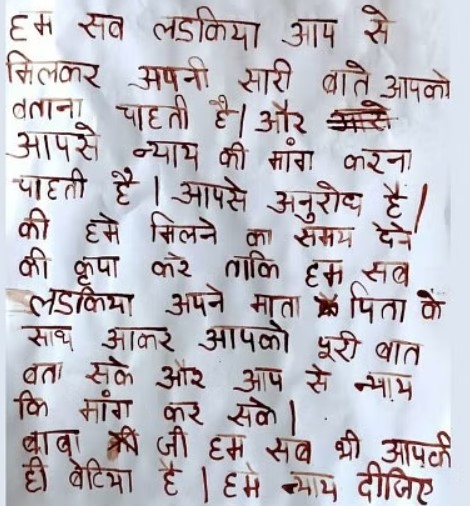 हम सब लडकिया आप से
मिलकर अपनी सारी बाते आपको
बताना चाहती है। और
आपसे न्याय की मांग करना
चाहती है। आपसे अनुरोध है।
की हमे मिलने का समय देने
की कृपा करे ताकि हम सब
लडकिया अपने माता पिता के
साथ आकर आपको पूरी बात
बता सके और आप से न्याय
कि मांग कर सके।
बाबा जी हम सब भी आपकी
ही बेटिया है। हमे न्याय दीजिए